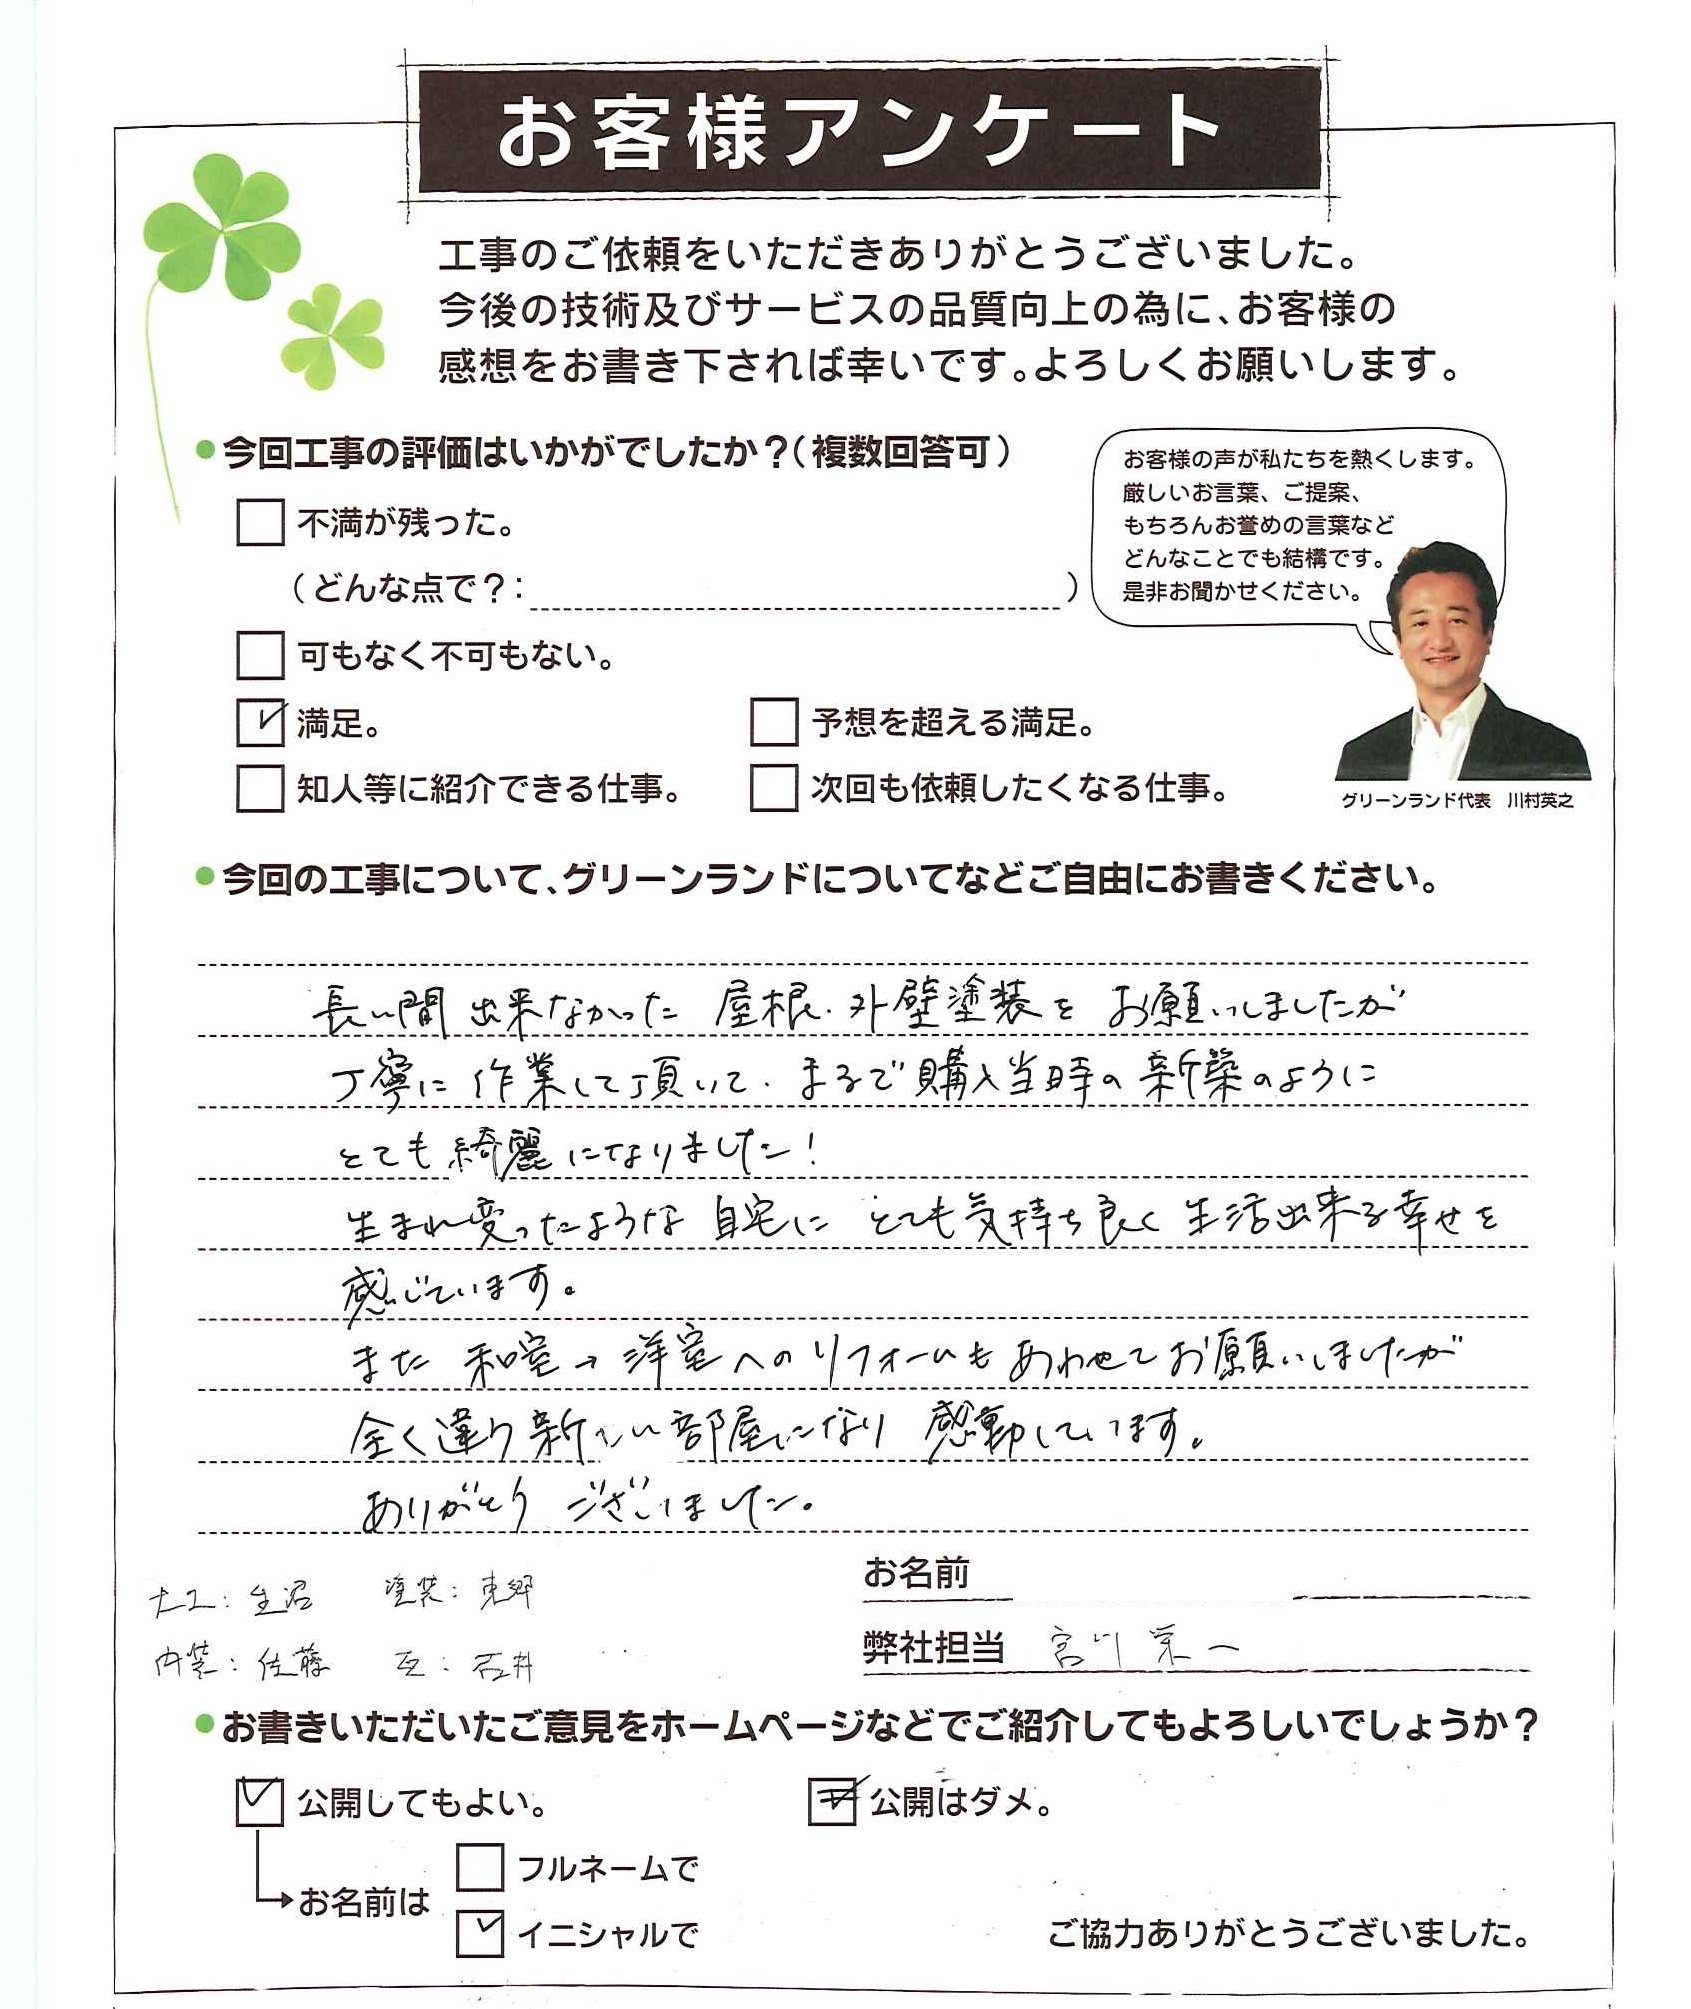 お客様アンケート
工事のご依頼をいただきありがとうございました。
今後の技術及びサービスの品質向上の為に、お客様の
感想をお書き下されば幸いです。よろしくお願いします。
●今回工事の評価はいかがでしたか?(複数回答可)
お客様の声が私たちを熱くします。
厳しいお言葉、ご提案、
もちろんお誉めの言葉など
どんなことでも結構です。
是非お聞かせください。
不満が残った。
(どんな点で?: )
可もなく不可もない。
満足。 予想を超える満足。
知人等に紹介できる仕事。 次回も依頼したくなる仕事。
グリーンランド代表 川村英之
●今回の工事について、グリーンランドについてなどご自由にお書きください。
長い間 出来なかった 屋根・外壁塗装を お願いしましたが
丁寧に 作業して頂いて、まるで購入当時の新築のように
とても綺麗になりました!
生まれ変ったような 自宅に とても気持ち良く生活出来る幸せを
感じています。
また 和室→洋室へのリフォームもあわせてお願いしましたが
全く違う新しい部屋になり 感動しています。
ありがとう ございました。
お名前
大工: 生沼 塗装: 東郷
弊社担当 宮川栄一
内装: 佐藤 瓦: 石井
●お書きいただいたご意見をホームページなどでご紹介してもよろしいでしょうか?
公開してもよい。 公開はダメ。
フルネームで
お名前は
イニシャルで
ご協力ありがとうございました。